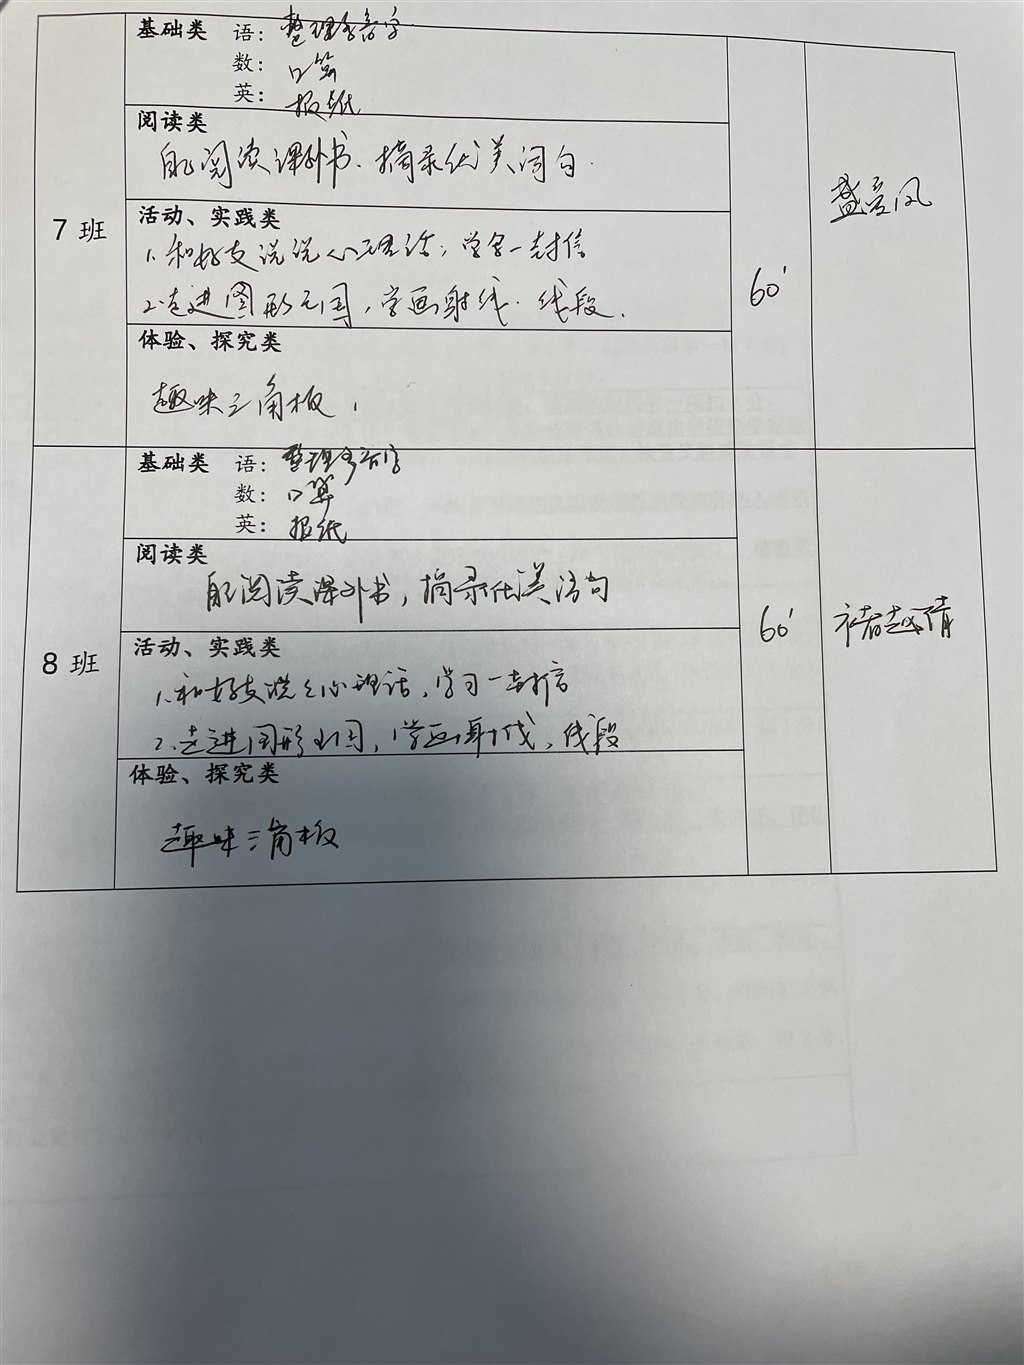 基础类 语：整理多音字
数：口算
英：报纸
阅读类
自己阅读课外书、摘录优美词句.
7 班
活动、实践类
1.和好友说说心理话，学写一封信
2.走进图形王国，学画射线、线段.
60'
盛变风
体验、探究类
趣味三角板，
基础类 语：整理多音字
数：口算
英：报纸
阅读类
自己阅读课外书，摘录优美词句
8 班
活动、实践类
1.和好友说说心理话，学习一封信
2.走进图形王国，学画射线，线段
60'
褚越倩
体验、探究类
趣味三角板